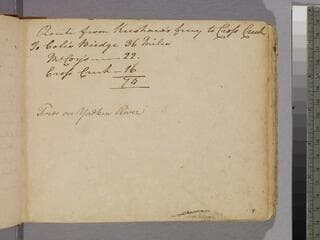 Route from Kershaw's ferry to Cross Creek
To Cole's Bridge 36 Miles
McCoy's — 22.
Cross Creek — 16
74
on Yadkin River